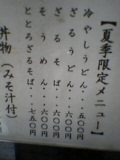 【夏季限定メニュー】
冷やしうどん・・五〇〇円
ざるうどん・・・六〇〇円
ざるそば・・・・六〇〇円
そうめん・・・・六〇〇円
ととろざるそば・・七五〇円
丼物(みそ汁付)